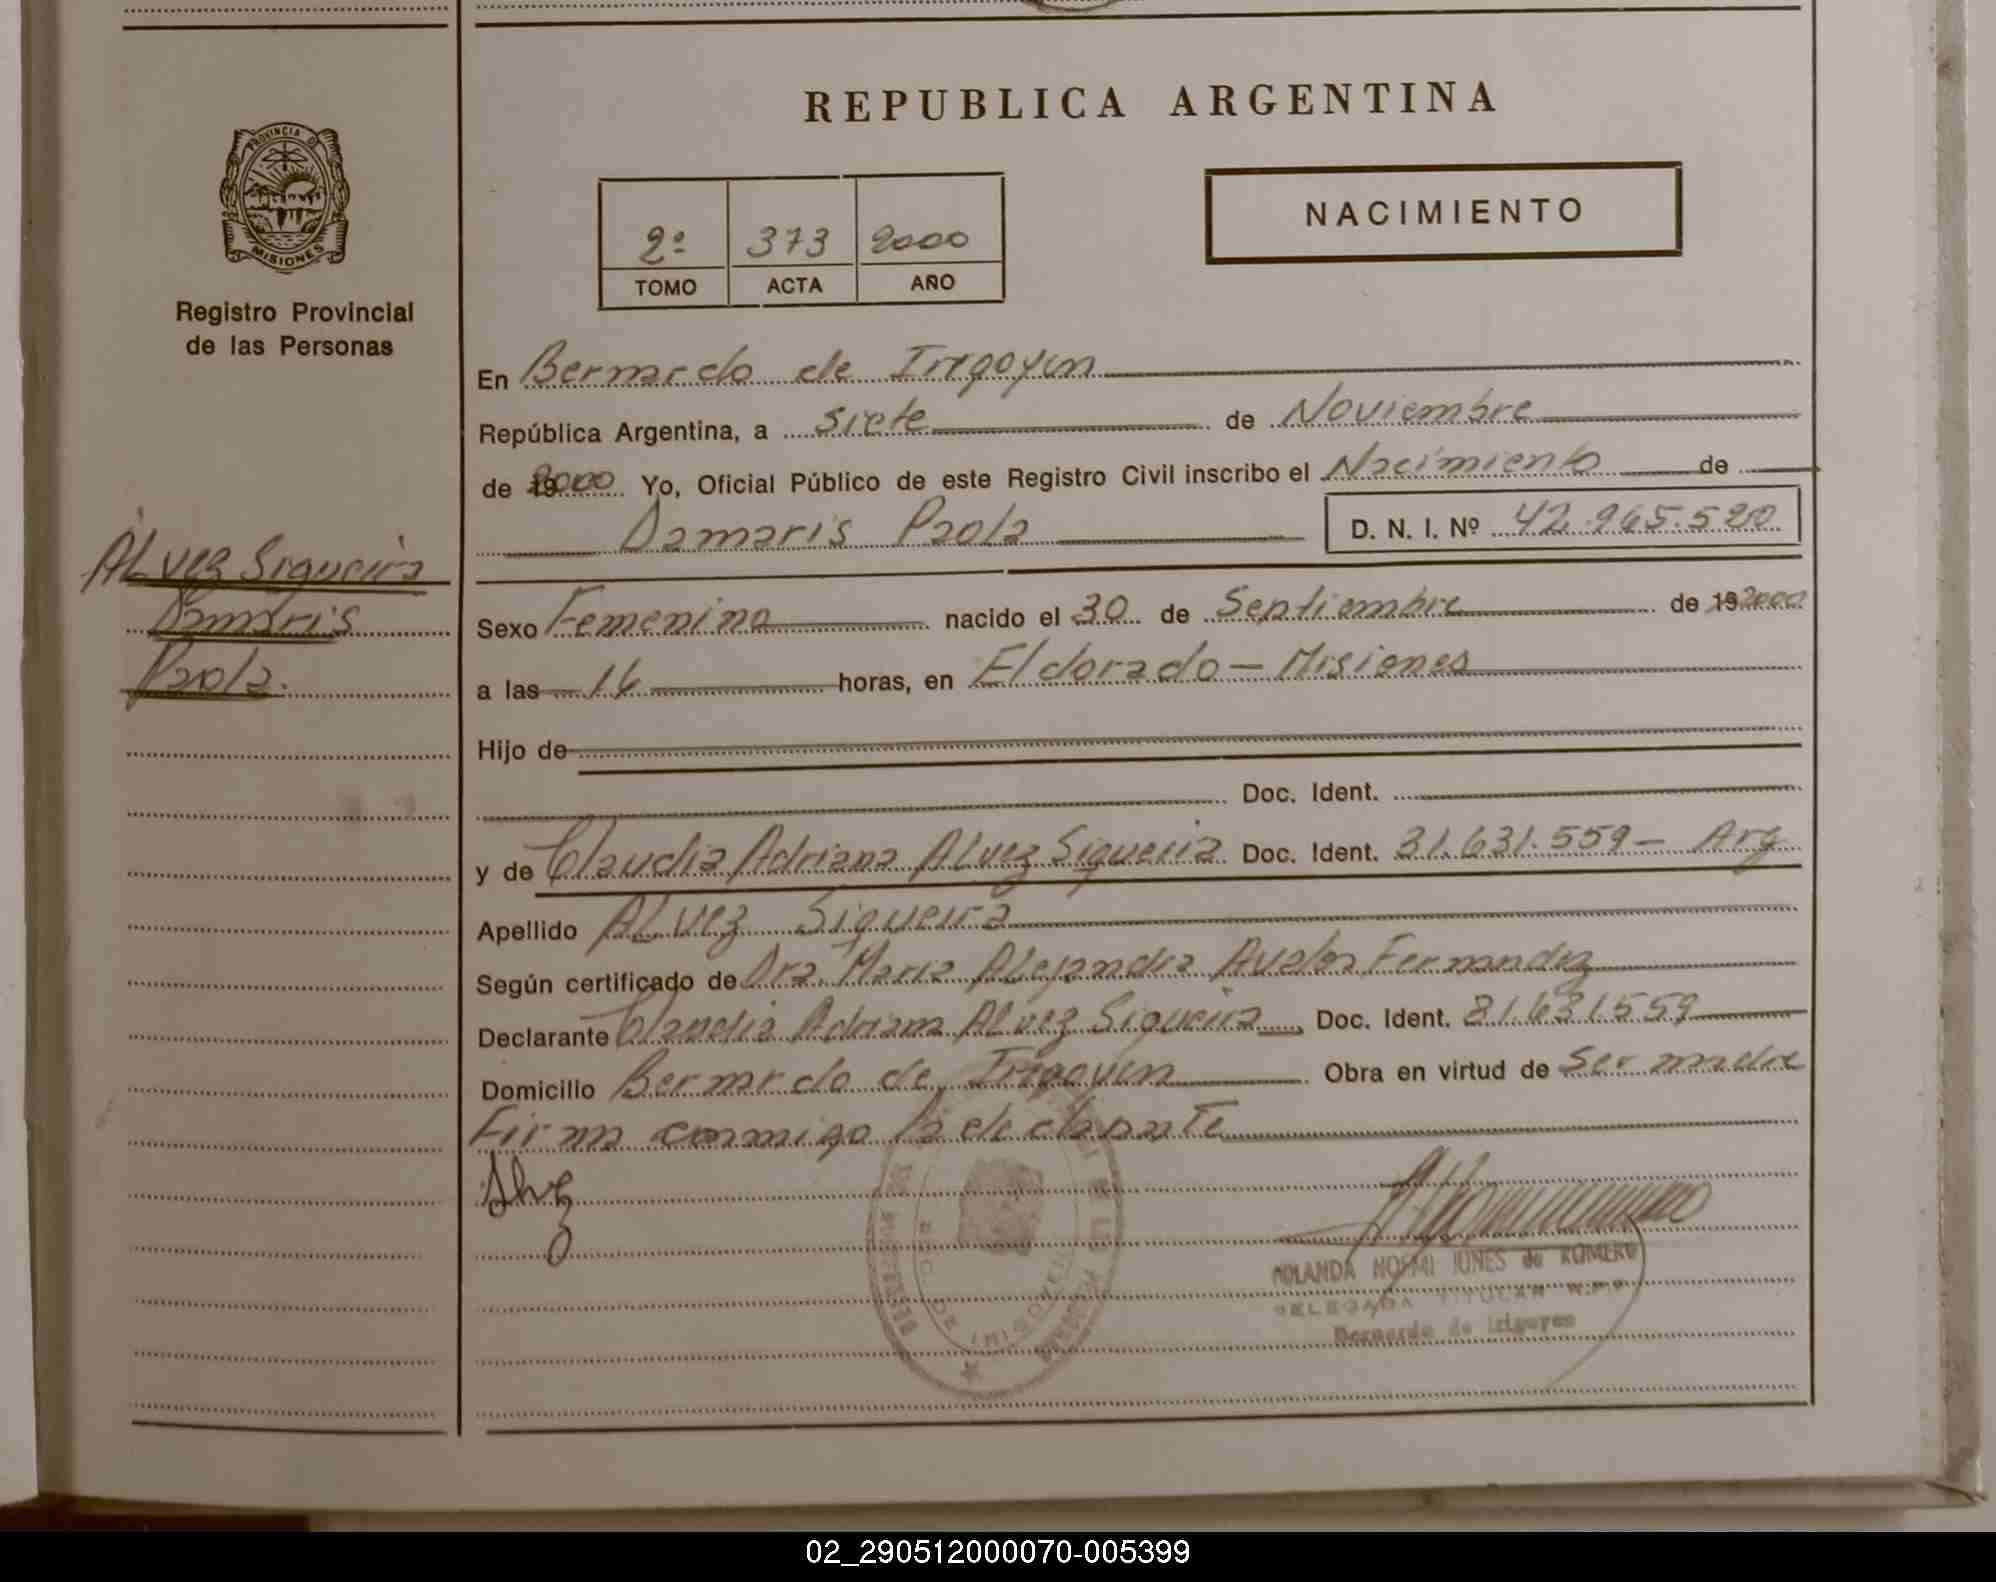 REPUBLICA ARGENTINA
PROVINCIA DE
MISIONES
Registro Provincial
de las Personas
NACIMIENTO
2º 373 2000
TOMO ACTA AÑO
En Bernardo de Irigoyen
República Argentina, a siete de Noviembre
de 2000 Yo, Oficial Público de este Registro Civil inscribo el Nacimiento de
Damaris Paola D. N. I. Nº 42.965.520
ALvez Siqueira
Damaris
Paola.
Sexo Femenino nacido el 30 de Septiembre de 19 2000
a las 16 horas, en Eldorado - Misiones
Hijo de
Doc. Ident.
y de Claudia Adriana ALvez Siqueira Doc. Ident. 31.631.559 - Arg
Apellido ALvez Siqueira
Según certificado de Dra. Maria Alejandra Fernandez
Declarante Claudia Adriana ALvez Siqueira, Doc. Ident. 31.631.559
Domicilio Bernardo de Irigoyen Obra en virtud de Ser madre
Firma conmigo la declarante
Alvez
YOLANDA NOEMI JONES de ROMERO
DELEGADA TITULAR
Bernardo de Irigoyen
02_290512000070-005399